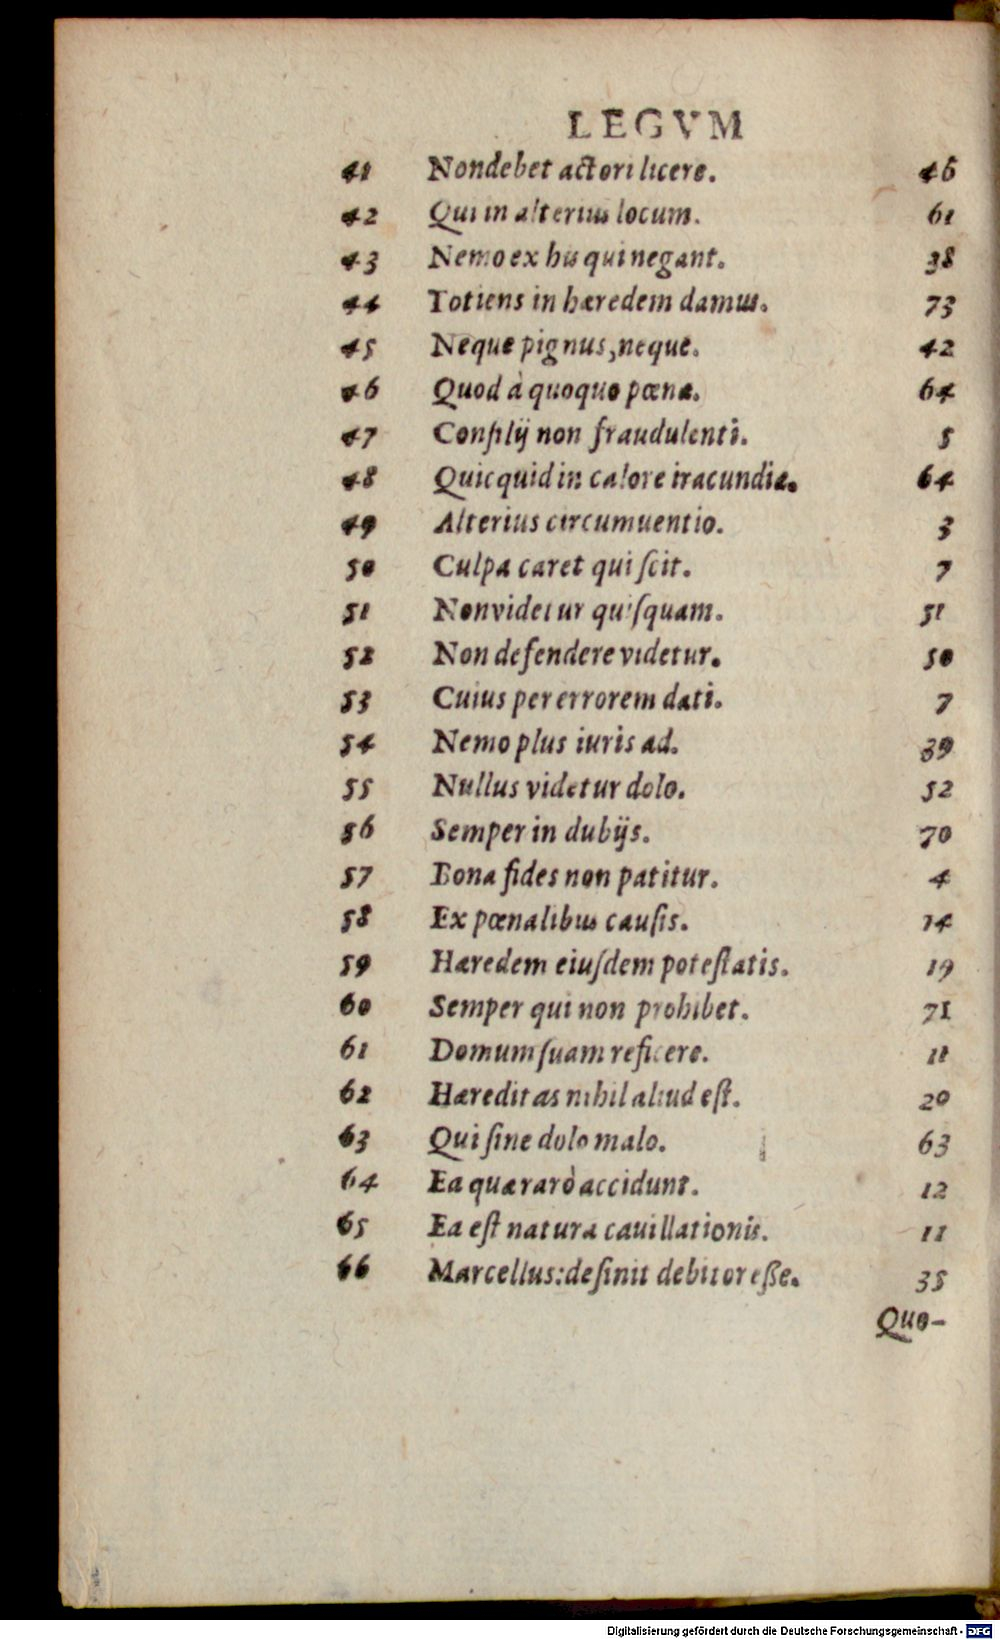 LEGVM
41 Non debet actori licere. 46
42 Qui in alterius locum. 61
43 Nemo ex his qui negant. 38
44 Totiens in hæredem damus. 73
45 Neque pignus, neque. 42
46 Quod à quoquo pœnæ. 64
47 Conſilij non fraudulenti. 5
48 Quicquid in calore iracundiæ. 64
49 Alterius circumuentio. 3
50 Culpa caret qui ſcit. 7
51 Non videtur quiſquam. 51
52 Non defendere videtur. 50
53 Cuius per errorem dati. 7
54 Nemo plus iuris ad. 39
55 Nullus videtur dolo. 52
56 Semper in dubijs. 70
57 Bona fides non patitur. 4
58 Ex pœnalibus cauſis. 14
59 Hæredem eiuſdem poteſtatis. 19
60 Semper qui non prohibet. 71
61 Domum ſuam reficere. 11
62 Hæreditas nihil aliud eſt. 20
63 Qui ſine dolo malo. 63
64 Ea quæ rarò accidunt. 12
65 Ea eſt natura cauillationis. 11
66 Marcellus: deſinit debitor eſſe. 35
Quo-
Digitalisierung gefördert durch die Deutsche Forschungsgemeinschaft - DFG